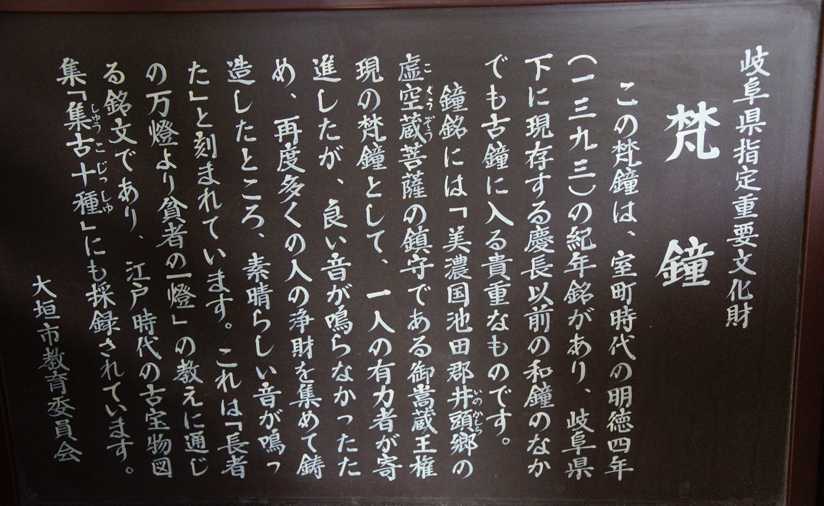 岐阜県指定重要文化財
梵鐘
この梵鐘は、室町時代の明徳四年
(一三九三)の紀年銘があり、岐阜県
下に現存する慶長以前の和鐘のなか
でも古鐘に入る貴重なものです。
鐘銘には「美濃国池田郡井頭郷の
虚空蔵菩薩の鎮守である御嵩蔵王権
現の梵鐘として、一人の有力者が寄
進したが、良い音が鳴らなかったた
め、再度多くの人の浄財を集めて鋳
造したところ、素晴らしい音が鳴っ
た」と刻まれています。これは「長者
の万燈より貧者の一燈」の教えに通じ
る銘文であり、江戸時代の古宝物図
集「集古十種」にも採録されています。
大垣市教育委員会